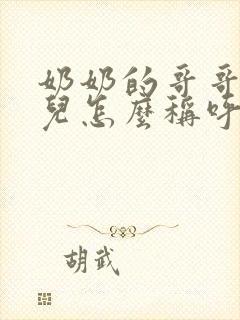 奶奶的哥哥
兒怎麼稱呼
胡武